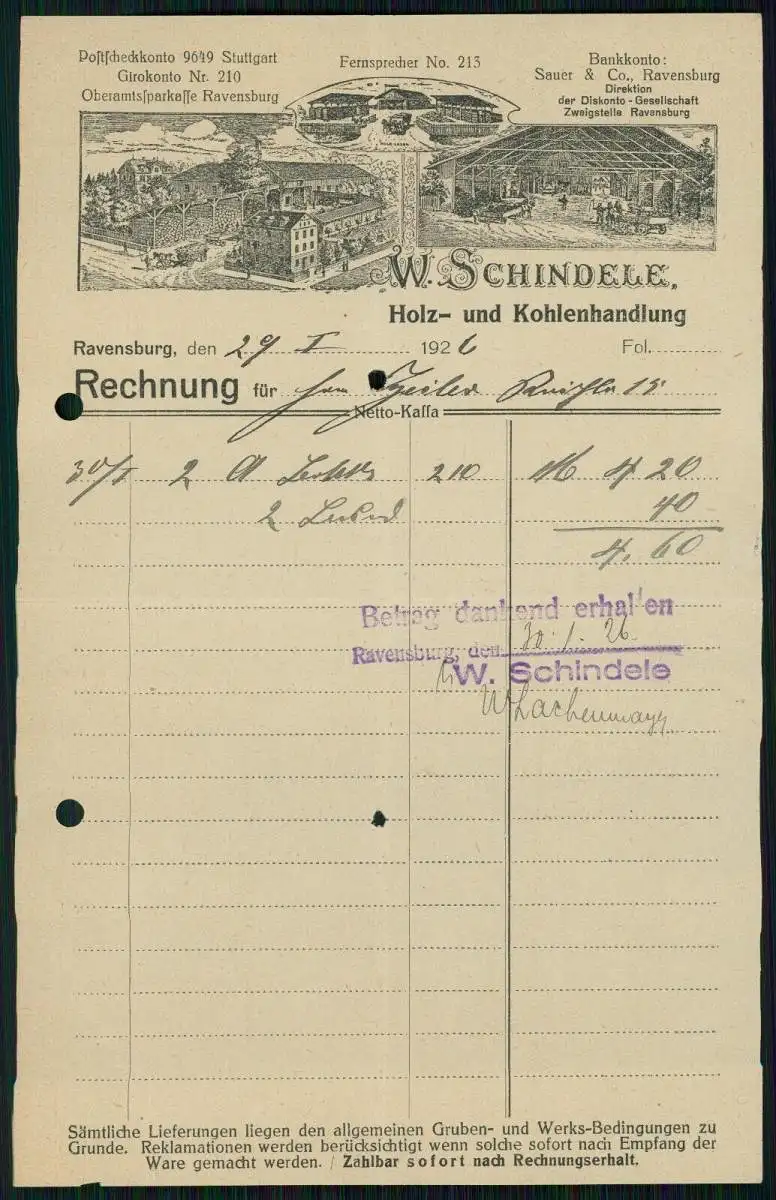 Postscheckkonto 9649 Stuttgart
Girokonto Nr. 210
Oberamtssparkasse Ravensburg
Fernsprecher No. 213
Bankkonto:
Sauer & Co., Ravensburg
Direktion
der Diskonto-Gesellschaft
Zweigstelle Ravensburg
W. SCHINDELE,
Holz- und Kohlenhandlung
Ravensburg, den 29 I 1926 Fol.
Rechnung für 15
Netto-Kassa
30/I 2 210 M 4 20
2 40
4,60
Betrag dankend erhalten
Ravensburg, den 30.1.26.
W. Schindele
W Lachenmayr
Sämtliche Lieferungen liegen den allgemeinen Gruben- und Werks-Bedingungen zu
Grunde. Reklamationen werden berücksichtigt wenn solche sofort nach Empfang der
Ware gemacht werden. / Zahlbar sofort nach Rechnungserhalt.